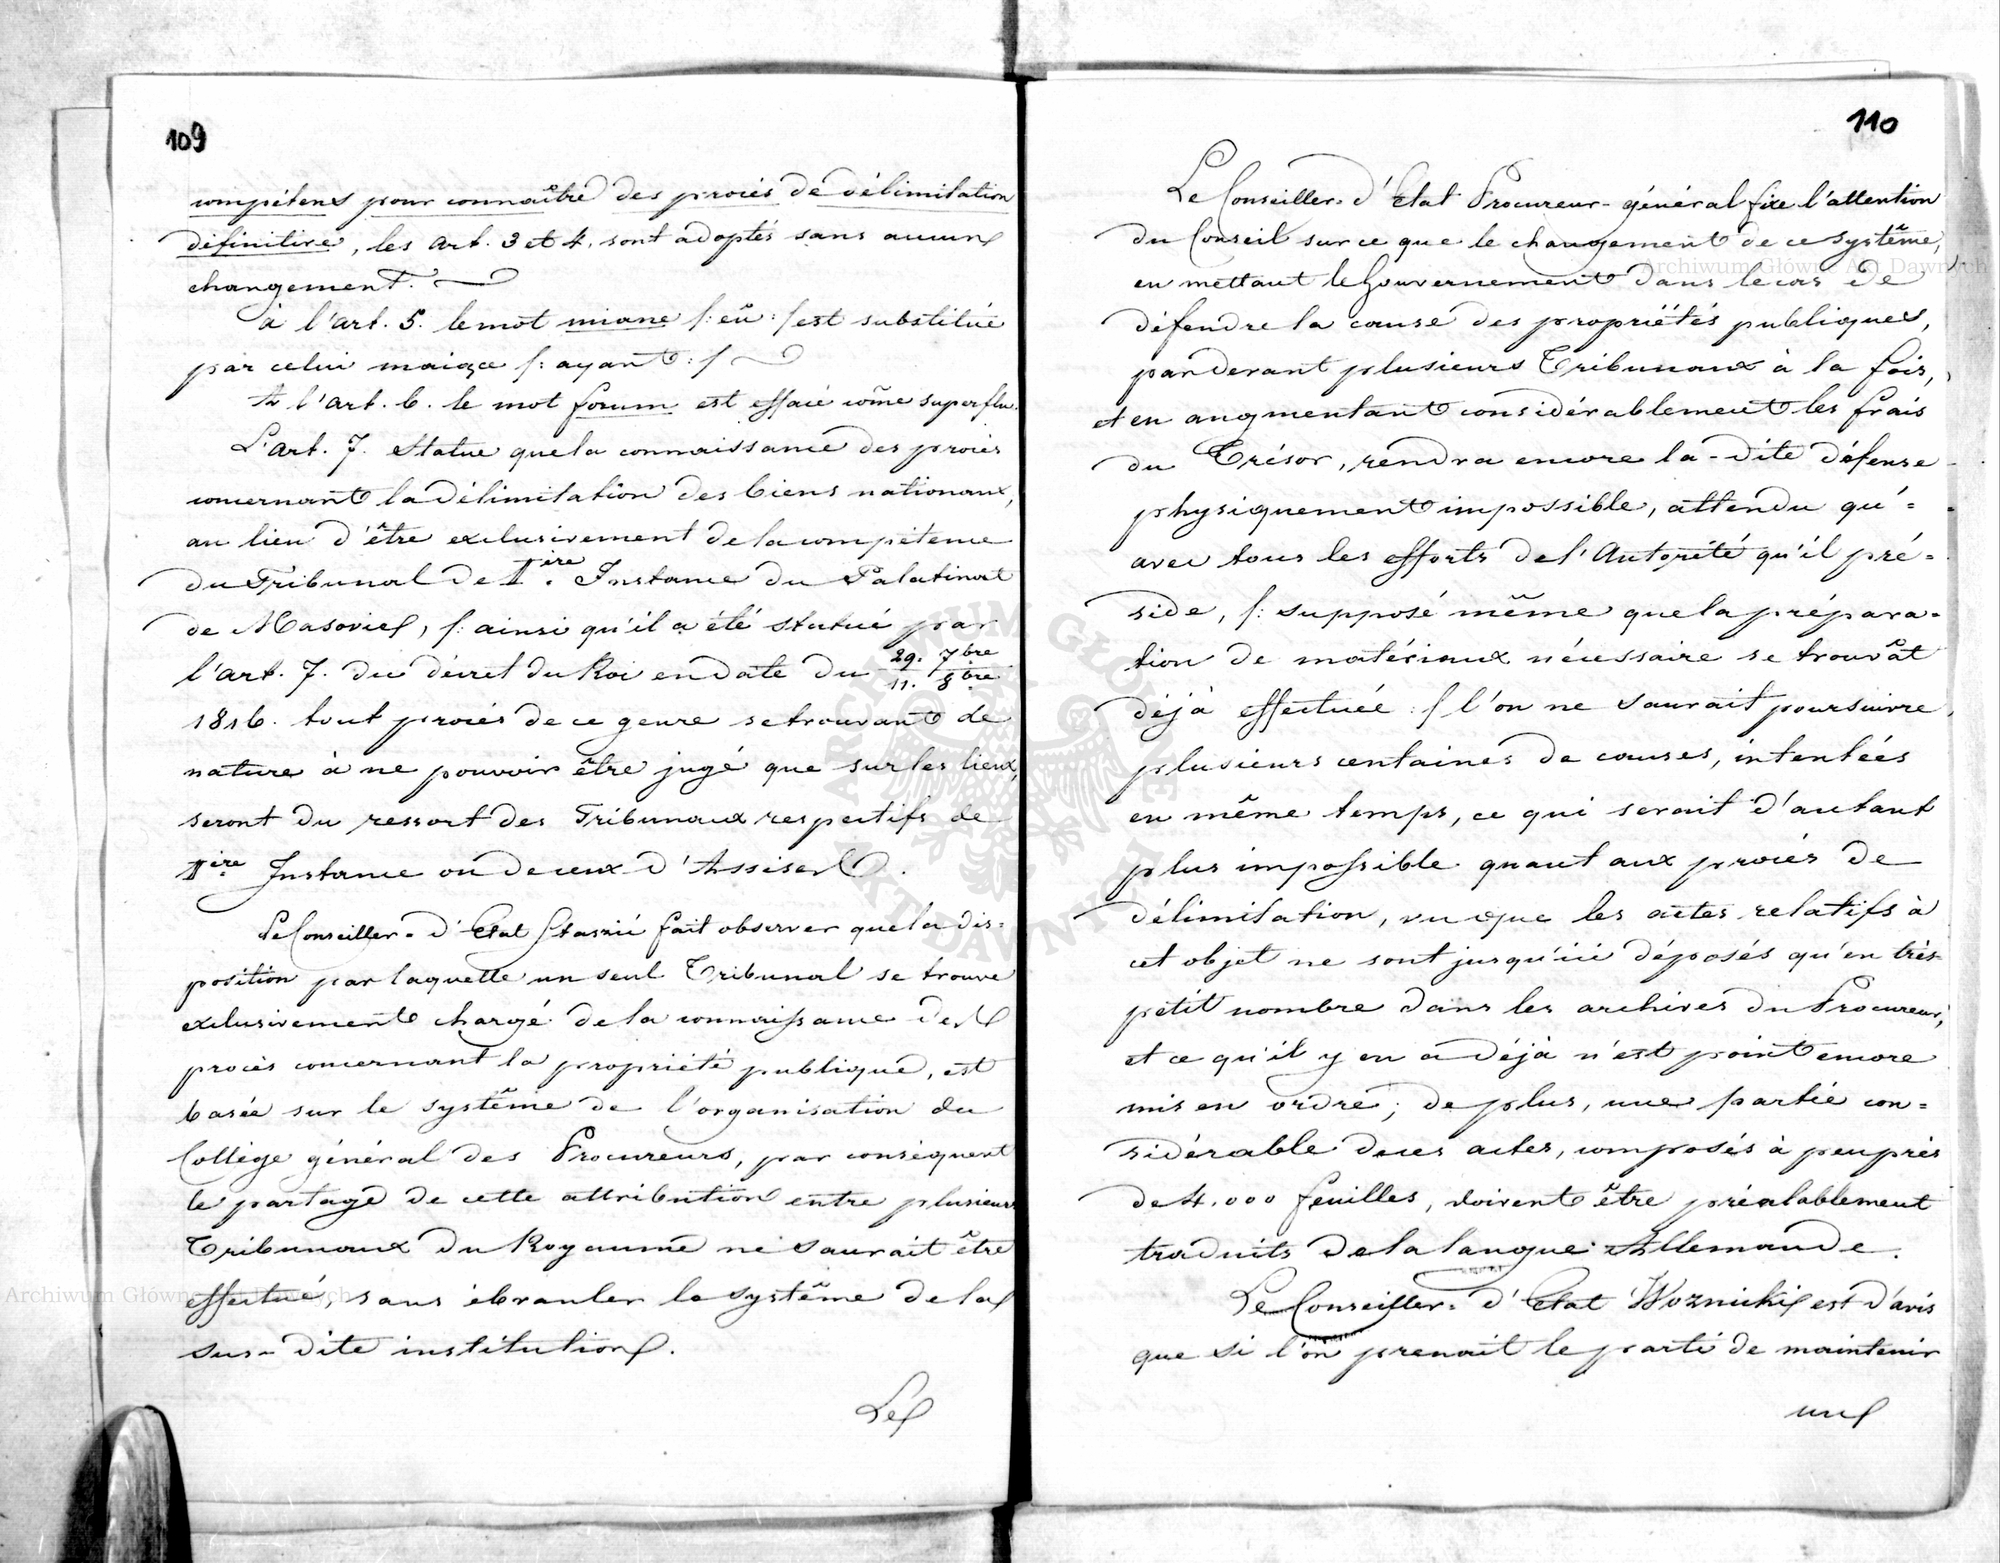 109
compétens pour connaître des procès de délimitation
définitive, les Art. 3 et 4. sont adoptés sans aucun
changement.
à l'art. 5. le mot miane /: eû :/ est substitué
par celui maiące /: ayant :/
A l'Art. 6. le mot forum est effacé côme superflu.
L'Art. 7. Statue que la connaissance des procès
concernant la délimitation des biens nationaux,
au lieu d'être exclusivement de la compétence
du Tribunal de Iière Instance du Palatinat
de Masovie, /: ainsi qu'il a été statué par
l'art. 7. du décret du Roi en date du 29. 7bre / 11. 8bre
1816. tout procès de ce genre se trouvant de
nature à ne pouvoir être jugé que sur les lieux,
seront du ressort des Tribunaux respectifs de
Iière Instance ou de ceux d'Assises.
Le Conseiller-d'Etat Staszic fait observer que la dis-
position par laquelle un seul Tribunal se trouve
exclusivement chargé de la connaissance des
procès concernant la propriété publique, est
basée sur le système de l'organisation du
Collège général des Procureurs, par conséquent
le partage de cette attribution entre plusieurs
Tribunaux du Royaume ne saurait être
effectué, sans ébranler le système de la
sus-dite institution.
Le
110
Le Conseiller-d'Etat Procureur-général fixe l'attention
du Conseil sur ce que le changement de ce système,
en mettant le Gouvernement dans le cas de
défendre la cause des propriétés publiques,
pardevant plusieurs Tribunaux à la fois,
et en augmentant considérablement les frais
du Trésor, rendra encore la-dite défense
physiquement impossible, attendu qu'=
avec tous les efforts de l'Autorité qu'il pré=
side, /: supposé même que la prépara=
tion de matériaux nécessaire se trouvât
déjà effectuée :/ l'on ne saurait poursuivre
plusieurs centaines de causes, intentées
en même temps, ce qui serait d'autant
plus impossible quant aux procès de
délimitation, vu que les actes relatifs à
cet objet ne sont jusqu'ici déposés qu'en très-
petit nombre dans les archives du Procureur,
et ce qu'il y en a déjà n'est point encore
mis en ordre; de plus, une partie con=
sidérable de ces actes, composés à peu près
de 4.000 feuilles, doivent être préalablement
traduits de la langue Allemande.
Le Conseiller-d'Etat Woznicki est d'avis
que si l'on prenait le parti de maintenir
une
Archiwum Główne Akt Dawnych
Archiwum Główne Akt Dawnych
ARCHIWUM GŁÓWNE AKT DAWNYCH